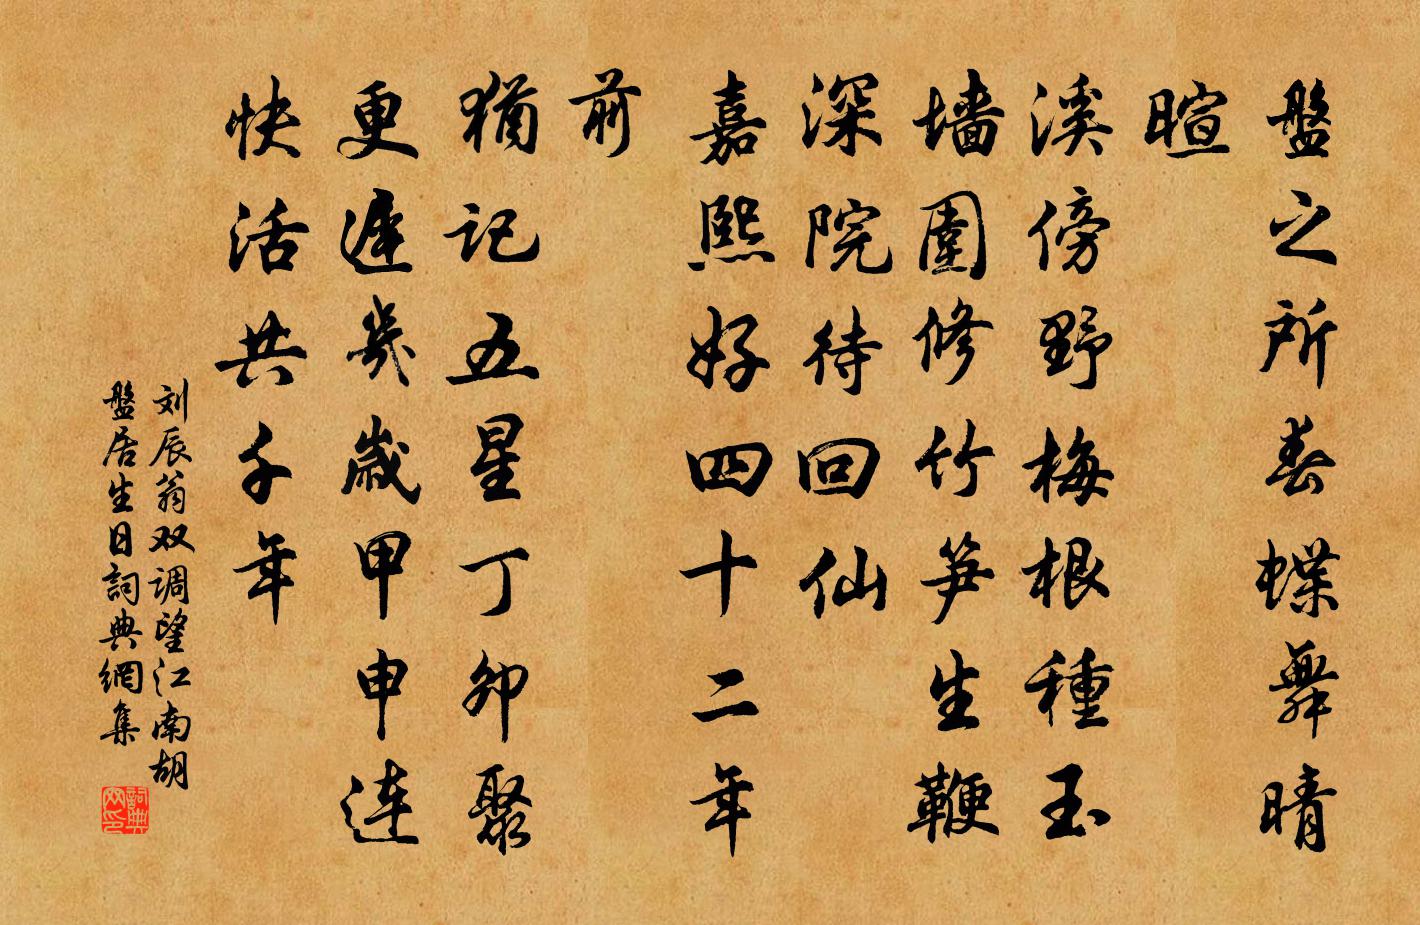 盤之所春蝶舞晴
暄
溪傍野梅根種玉
墻圍修竹笋生鞭
深院待回仙
嘉熙好四十二年
前
猶記五星丁卯聚
更遲幾歲甲申連
快活共千年
刘辰翁双调望江南胡
盤居生日詞典網集
詞典
网印